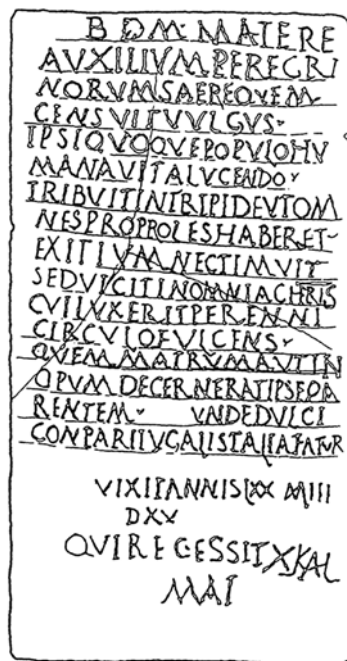 B D M · MATERE
AVXILIVM PEREGRI
NORVM SAEREQVEM
CENSVIT VVLGVS ·
IPSIQVOQVE POPVLO HV
MANA VITA LVGENDO ·
TRIBVIT INTRIPIDE VT OM
NES PRO PROLES HABERET ·
EXITIVM NEC TIMVIT
SED VICIT IN OMNIA CHRIS
CVI LVXERIT PERENNI
CIRCVLO EVICENS ·
QVEM MATRVM AVT IN
OPVM DECERNERAT IPSE PA
RENTEM · VNDE DVLCI
CONPARI IVGALI STALIA FATVR
VIXIT ANNIS LXX M IIII
D XX
QVI REGESSIT X KAL
MAI